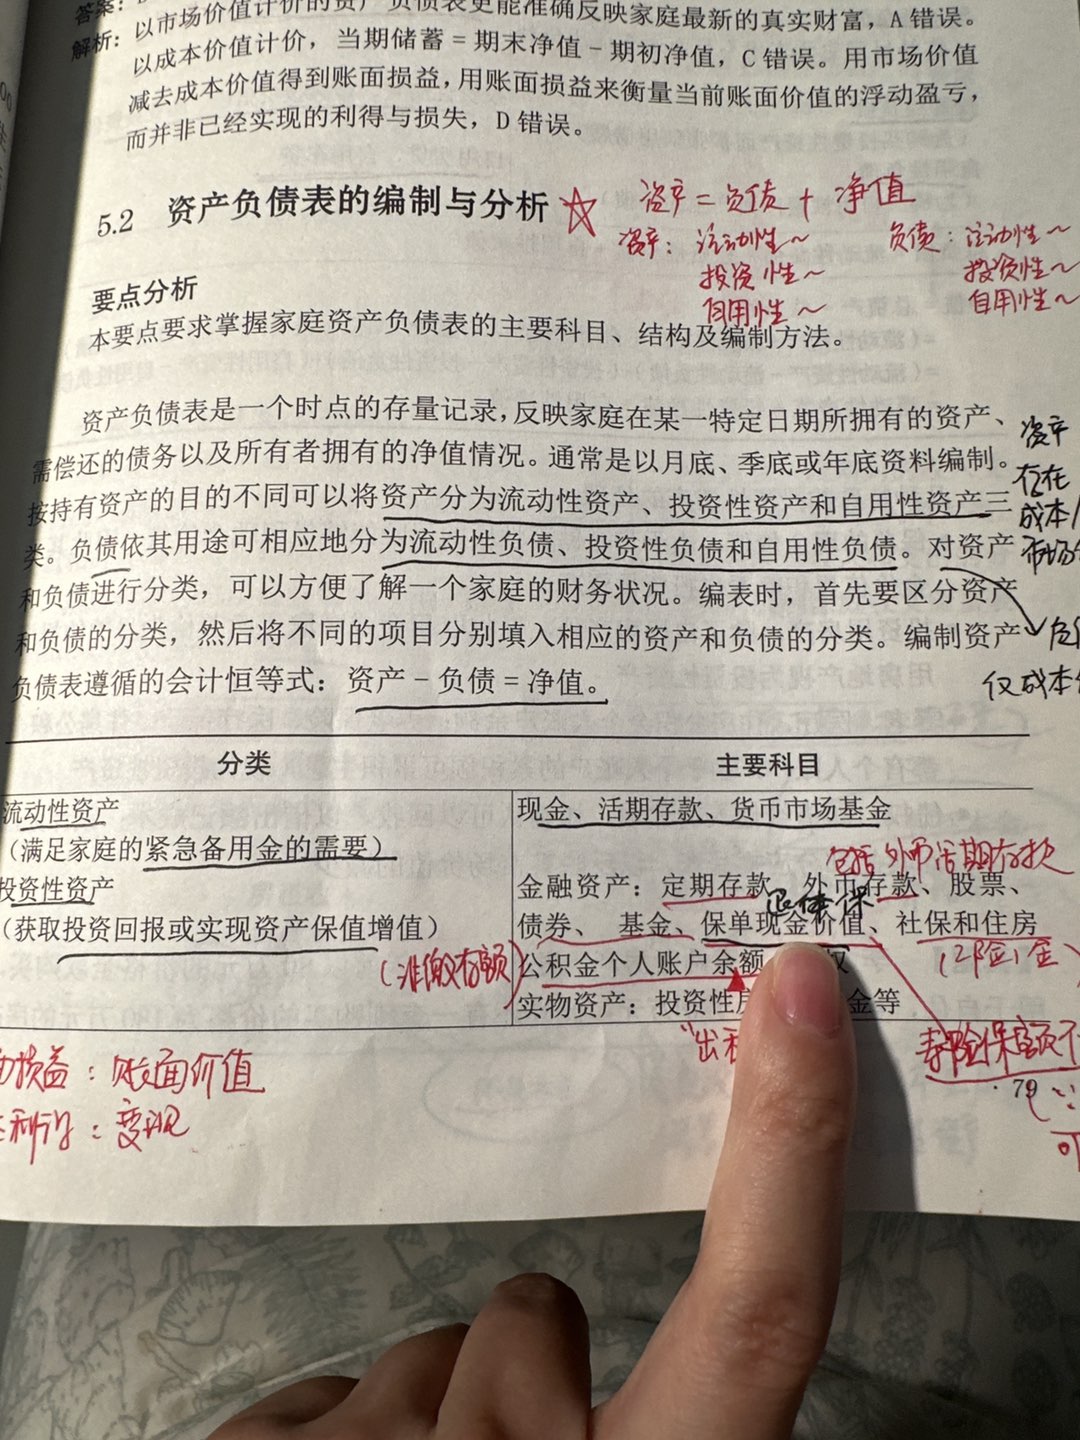 答案：
解析：以市场价值计价的资产负债表更能准确反映家庭最新的真实财富，A 错误。
以成本价值计价，当期储蓄 = 期末净值 - 期初净值，C 错误。用市场价值
减去成本价值得到账面损益，用账面损益来衡量当前账面价值的浮动盈亏，
而并非已经实现的利得与损失，D 错误。
5.2 资产负债表的编制与分析
资产 = 负债 + 净值
资产：流动性~
投资性~
自用性~
负债：流动性~
投资性~
自用性~
要点分析
本要点要求掌握家庭资产负债表的主要科目、结构及编制方法。
资产负债表是一个时点的存量记录，反映家庭在某一特定日期所拥有的资产、
需偿还的债务以及所有者拥有的净值情况。通常是以月底、季底或年底资料编制。
按持有资产的目的不同可以将资产分为流动性资产、投资性资产和自用性资产三
类。负债依其用途可相应地分为流动性负债、投资性负债和自用性负债。对资产
和负债进行分类，可以方便了解一个家庭的财务状况。编表时，首先要区分资产
和负债的分类，然后将不同的项目分别填入相应的资产和负债的分类。编制资产
负债表遵循的会计恒等式：资产 - 负债 = 净值。
资产
存在
成本/
市场
仅成本
分类
主要科目
流动性资产
（满足家庭的紧急备用金的需要）
现金、活期存款、货币市场基金
包括外币活期存款
投资性资产
（获取投资回报或实现资产保值增值）
金融资产：定期存款、外币存款、股票、
退休保
债券、 基金、保单现金价值、社保和住房
公积金个人账户余额
实物资产：投资性 金等
（准缴存额）
（2险1金）
"出租
寿险保额不
损益：账面价值
利得：变现
· 79